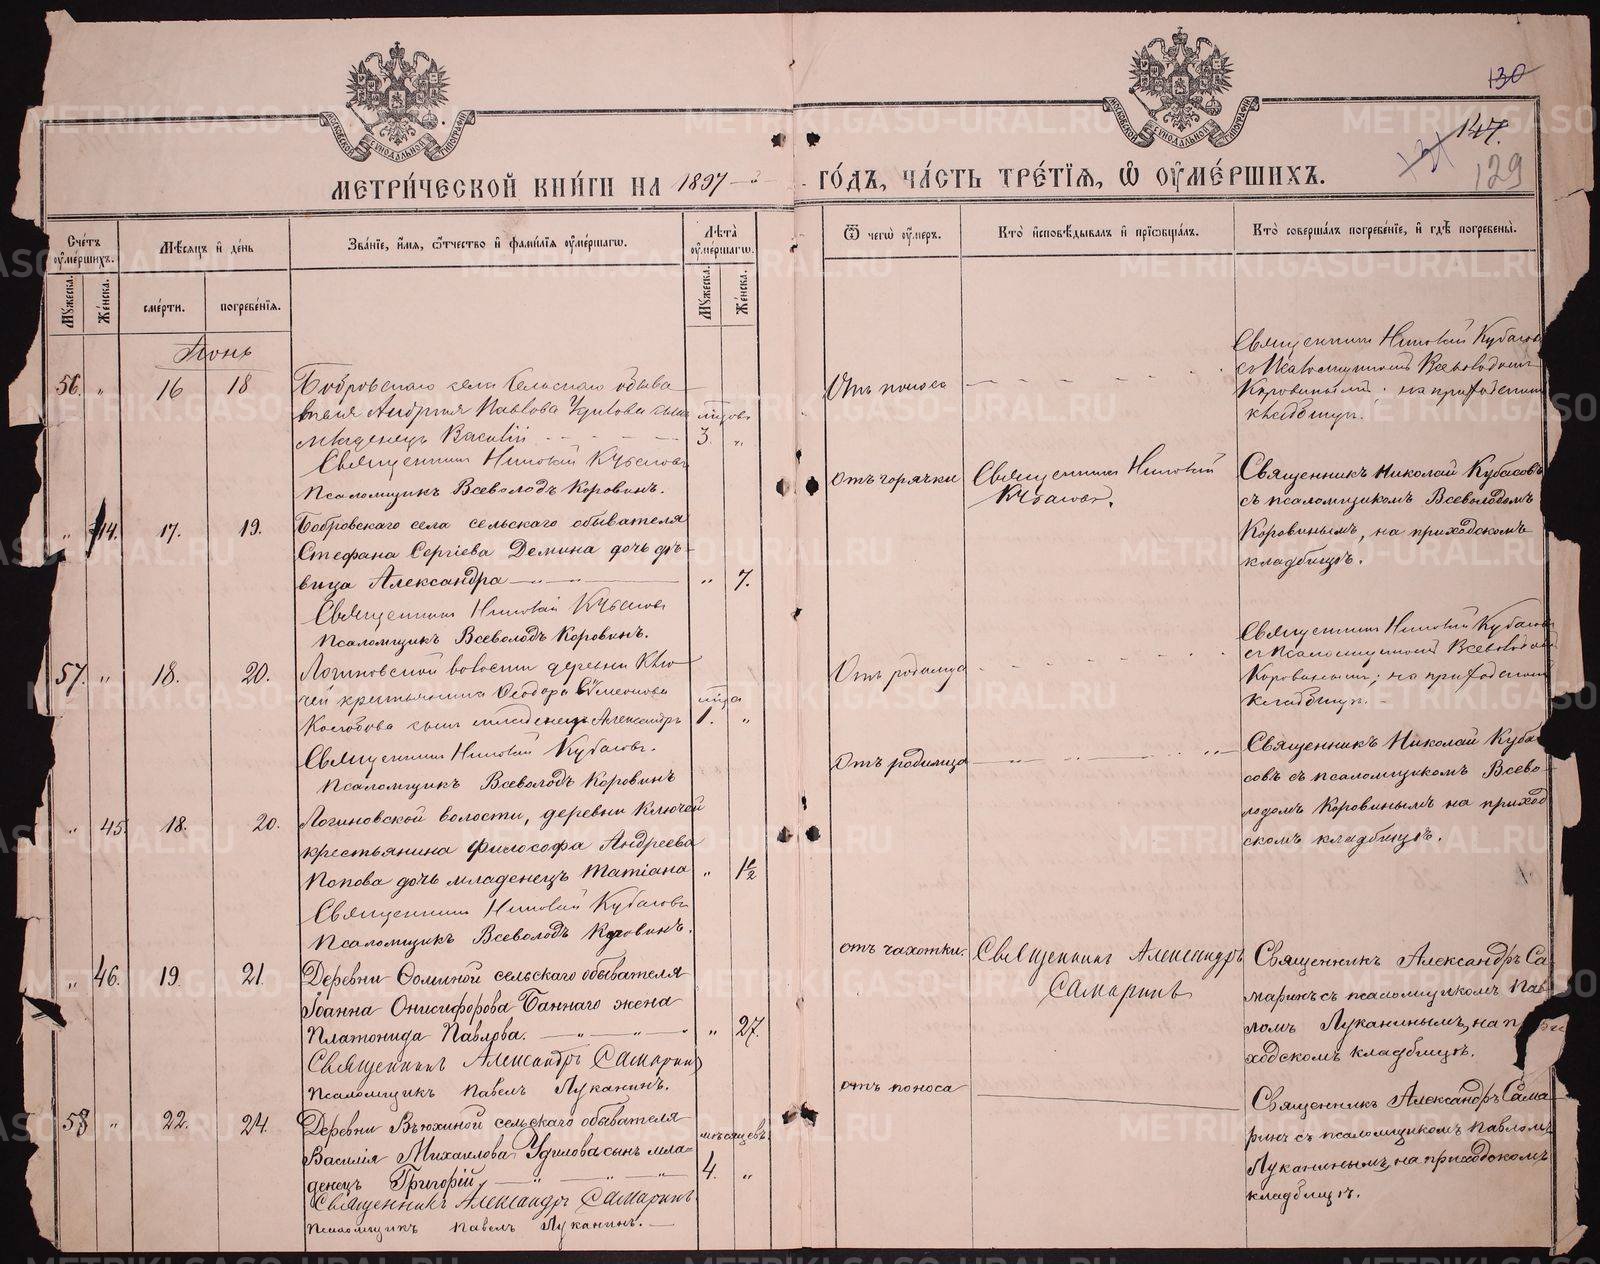 130
147.
129
МЕТРИ́ЧЕСКОЙ КНИ́ГИ НА 1897 ГО́ДЪ, ЧА́СТЬ ТРЕ́ТЇѦ, Ѡ ОУ҆МЕ́РШИХЪ.
Сче́тъ оу҆ме́ршихъ.
Мѣ́сѧцъ и҆ де́нь
Зва́нїе, и҆́мѧ, ѻ҆́тчество и҆ фами́лїѧ оу҆ме́ршагѡ.
Лѣ́та оу҆ме́ршагѡ.
Ѿ чегѡ̀ оу҆́меръ.
Кто̀ и҆сповѣ́дывалъ и҆ прїѡбща́лъ.
Кто̀ соверша́лъ погребе́нїе, и҆ гдѣ̀ погребены̀.
Мꙋ́жеска.
Же́нска.
сме́рти.
погребе́нїѧ.
Мꙋ́жеска.
Же́нска.
Іюнь
56. " 16 18
Бобровскаго села сельскаго обыва-
теля Андрея Павлова Удилова сынъ
младенецъ Василій
3. "
Священникъ Николай Кубасовъ
Псаломщикъ Всеволодъ Коровинъ.
Отъ поноса
Священникъ Николай Кубасовъ
съ Псаломщикомъ Всеволодомъ
Коровинымъ; на приходскомъ
кладбищѣ.
" 44. 17. 19.
Бобровскаго села сельскаго обывателя
Стефана Сергіева Демина дочь дѣ-
вица Александра
" 7.
Священникъ Николай Кубасовъ
Псаломщикъ Всеволодъ Коровинъ.
отъ горячки
Священникъ Николай
Кубасовъ.
Священникъ Николай Кубасовъ
съ псаломщикомъ Всеволодомъ
Коровинымъ, на приходскомъ
кладбищѣ.
57. " 18. 20.
Логиновской волости деревни Клю-
чей крестьянина Ѳеодора Симеонова
сынъ младенецъ Александръ
1. "
Священникъ Николай Кубасовъ.
Псаломщикъ Всеволодъ Коровинъ
Отъ родимца
Священникъ Николай Кубасовъ
съ Псаломщикомъ Всеволодомъ
Коровинымъ; на приходскомъ
кладбищѣ.
" 45. 18. 20.
Логиновской волости, деревни Ключей
крестьянина Философа Андреева
Попова дочь младенецъ Татіана
" 1½
Священникъ Николай Кубасовъ
Псаломщикъ Всеволодъ Коровинъ.
Отъ родимца
Священникъ Николай Куба-
совъ съ псаломщикомъ Всево-
лодомъ Коровинымъ на приход
скомъ кладбищѣ.
" 46. 19. 21.
Деревни Ѳоминой сельскаго обывателя
Іоанна Онисифорова Баннаго жена
Платонида Павлова.
" 27.
Священникъ Александръ Самаринъ
Псаломщикъ Павелъ Луканинъ.
отъ чахотки.
Священникъ Александръ
Самаринъ
Священникъ Александръ Са-
маринъ съ псаломщикомъ Пав-
ломъ Луканинымъ, на при-
ходскомъ кладбищѣ.
58 " 22. 24.
Деревни Вьюхиной сельскаго обывателя
Василія Михаилова Удилова сынъ мла-
денецъ Григорій
мѣсяцевъ
4. "
Священникъ Александръ Самаринъ.
Псаломщикъ Павелъ Луканинъ.
отъ поноса
Священникъ Александръ Сама-
ринъ съ псаломщикомъ Павломъ
Луканинымъ, на приходскомъ
кладбищѣ.
METRIKI.GASO-URAL.RU